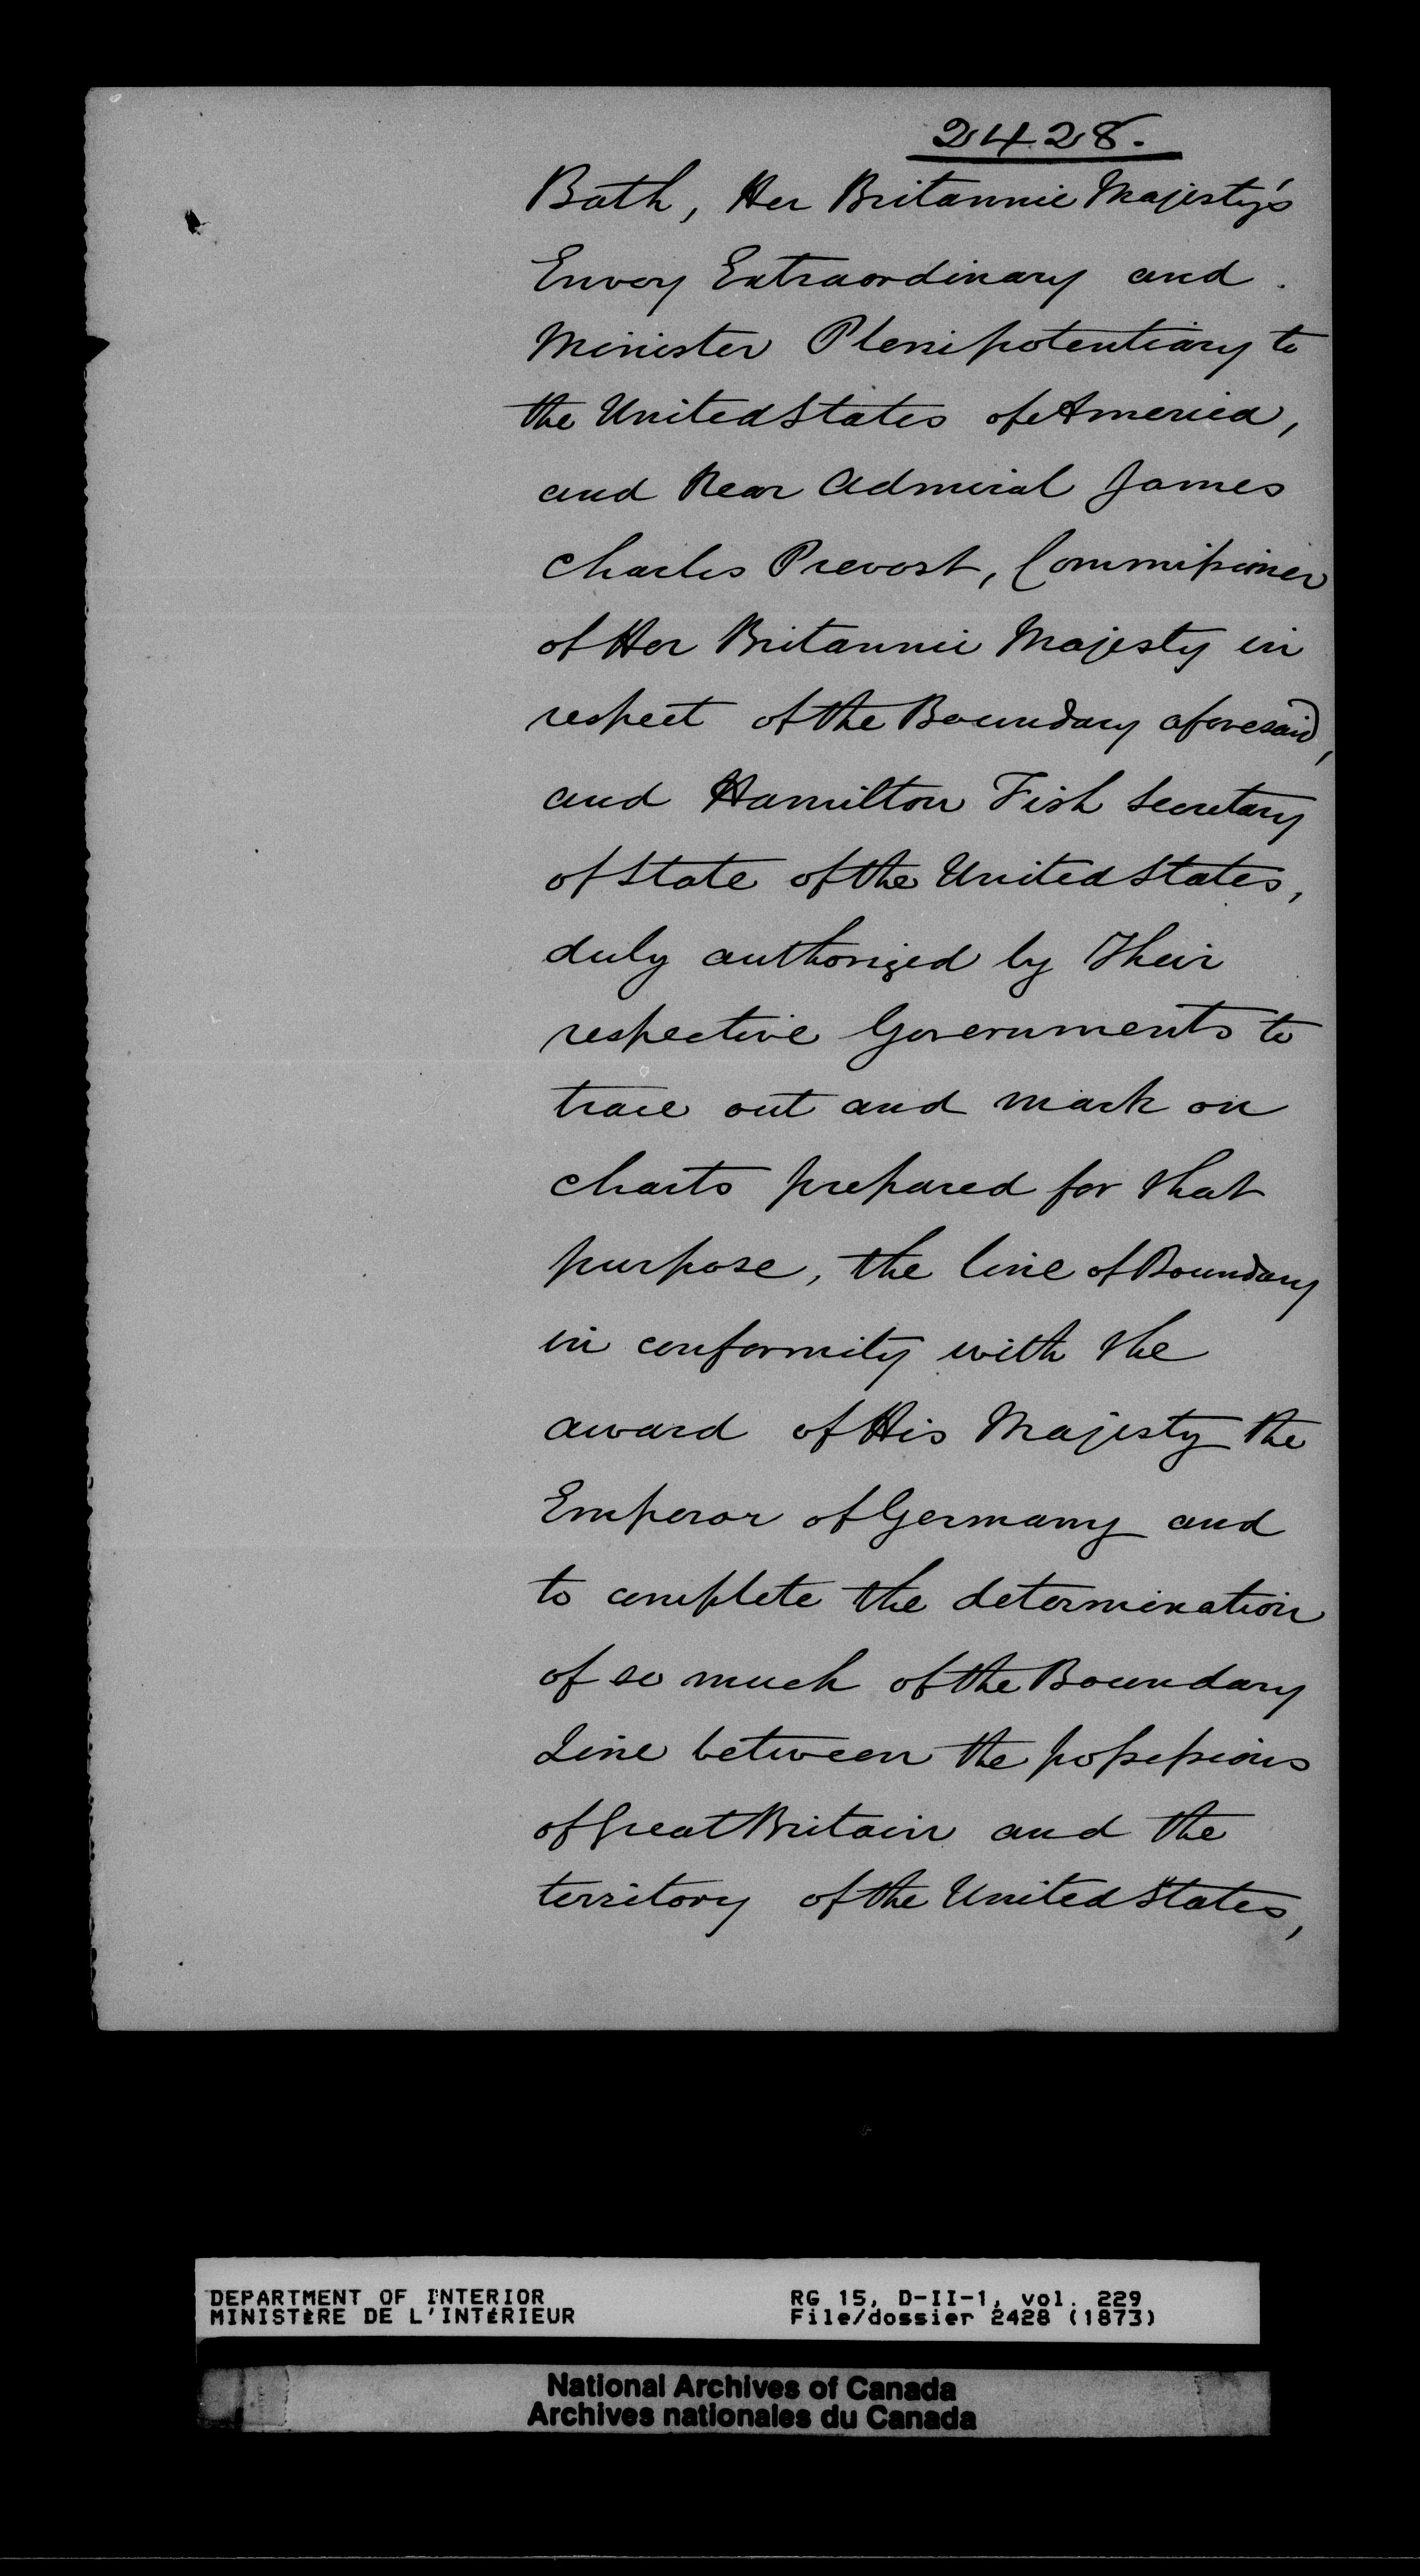 2428.
Bath, Her Britannic Majesty's
Envoy Extraordinary and
Minister Plenipotentiary to
the United States of America,
and Rear Admiral James
Charles Prevost, Commissioner
of Her Britannic Majesty in
respect of the Boundary aforesaid,
and Hamilton Fish Secretary
of State of the United States,
duly authorized by their
respective Governments to
trace out and mark on
charts prepared for that
purpose, the line of Boundary
in conformity with the
award of His Majesty the
Emperor of Germany and
to complete the determination
of so much of the Boundary
Line between the possessions
of Great Britain and the
territory of the United States,
DEPARTMENT OF INTERIOR
MINISTÈRE DE L'INTÉRIEUR
RG 15, D-II-1, vol. 229
File/dossier 2428 (1873)
National Archives of Canada
Archives nationales du Canada